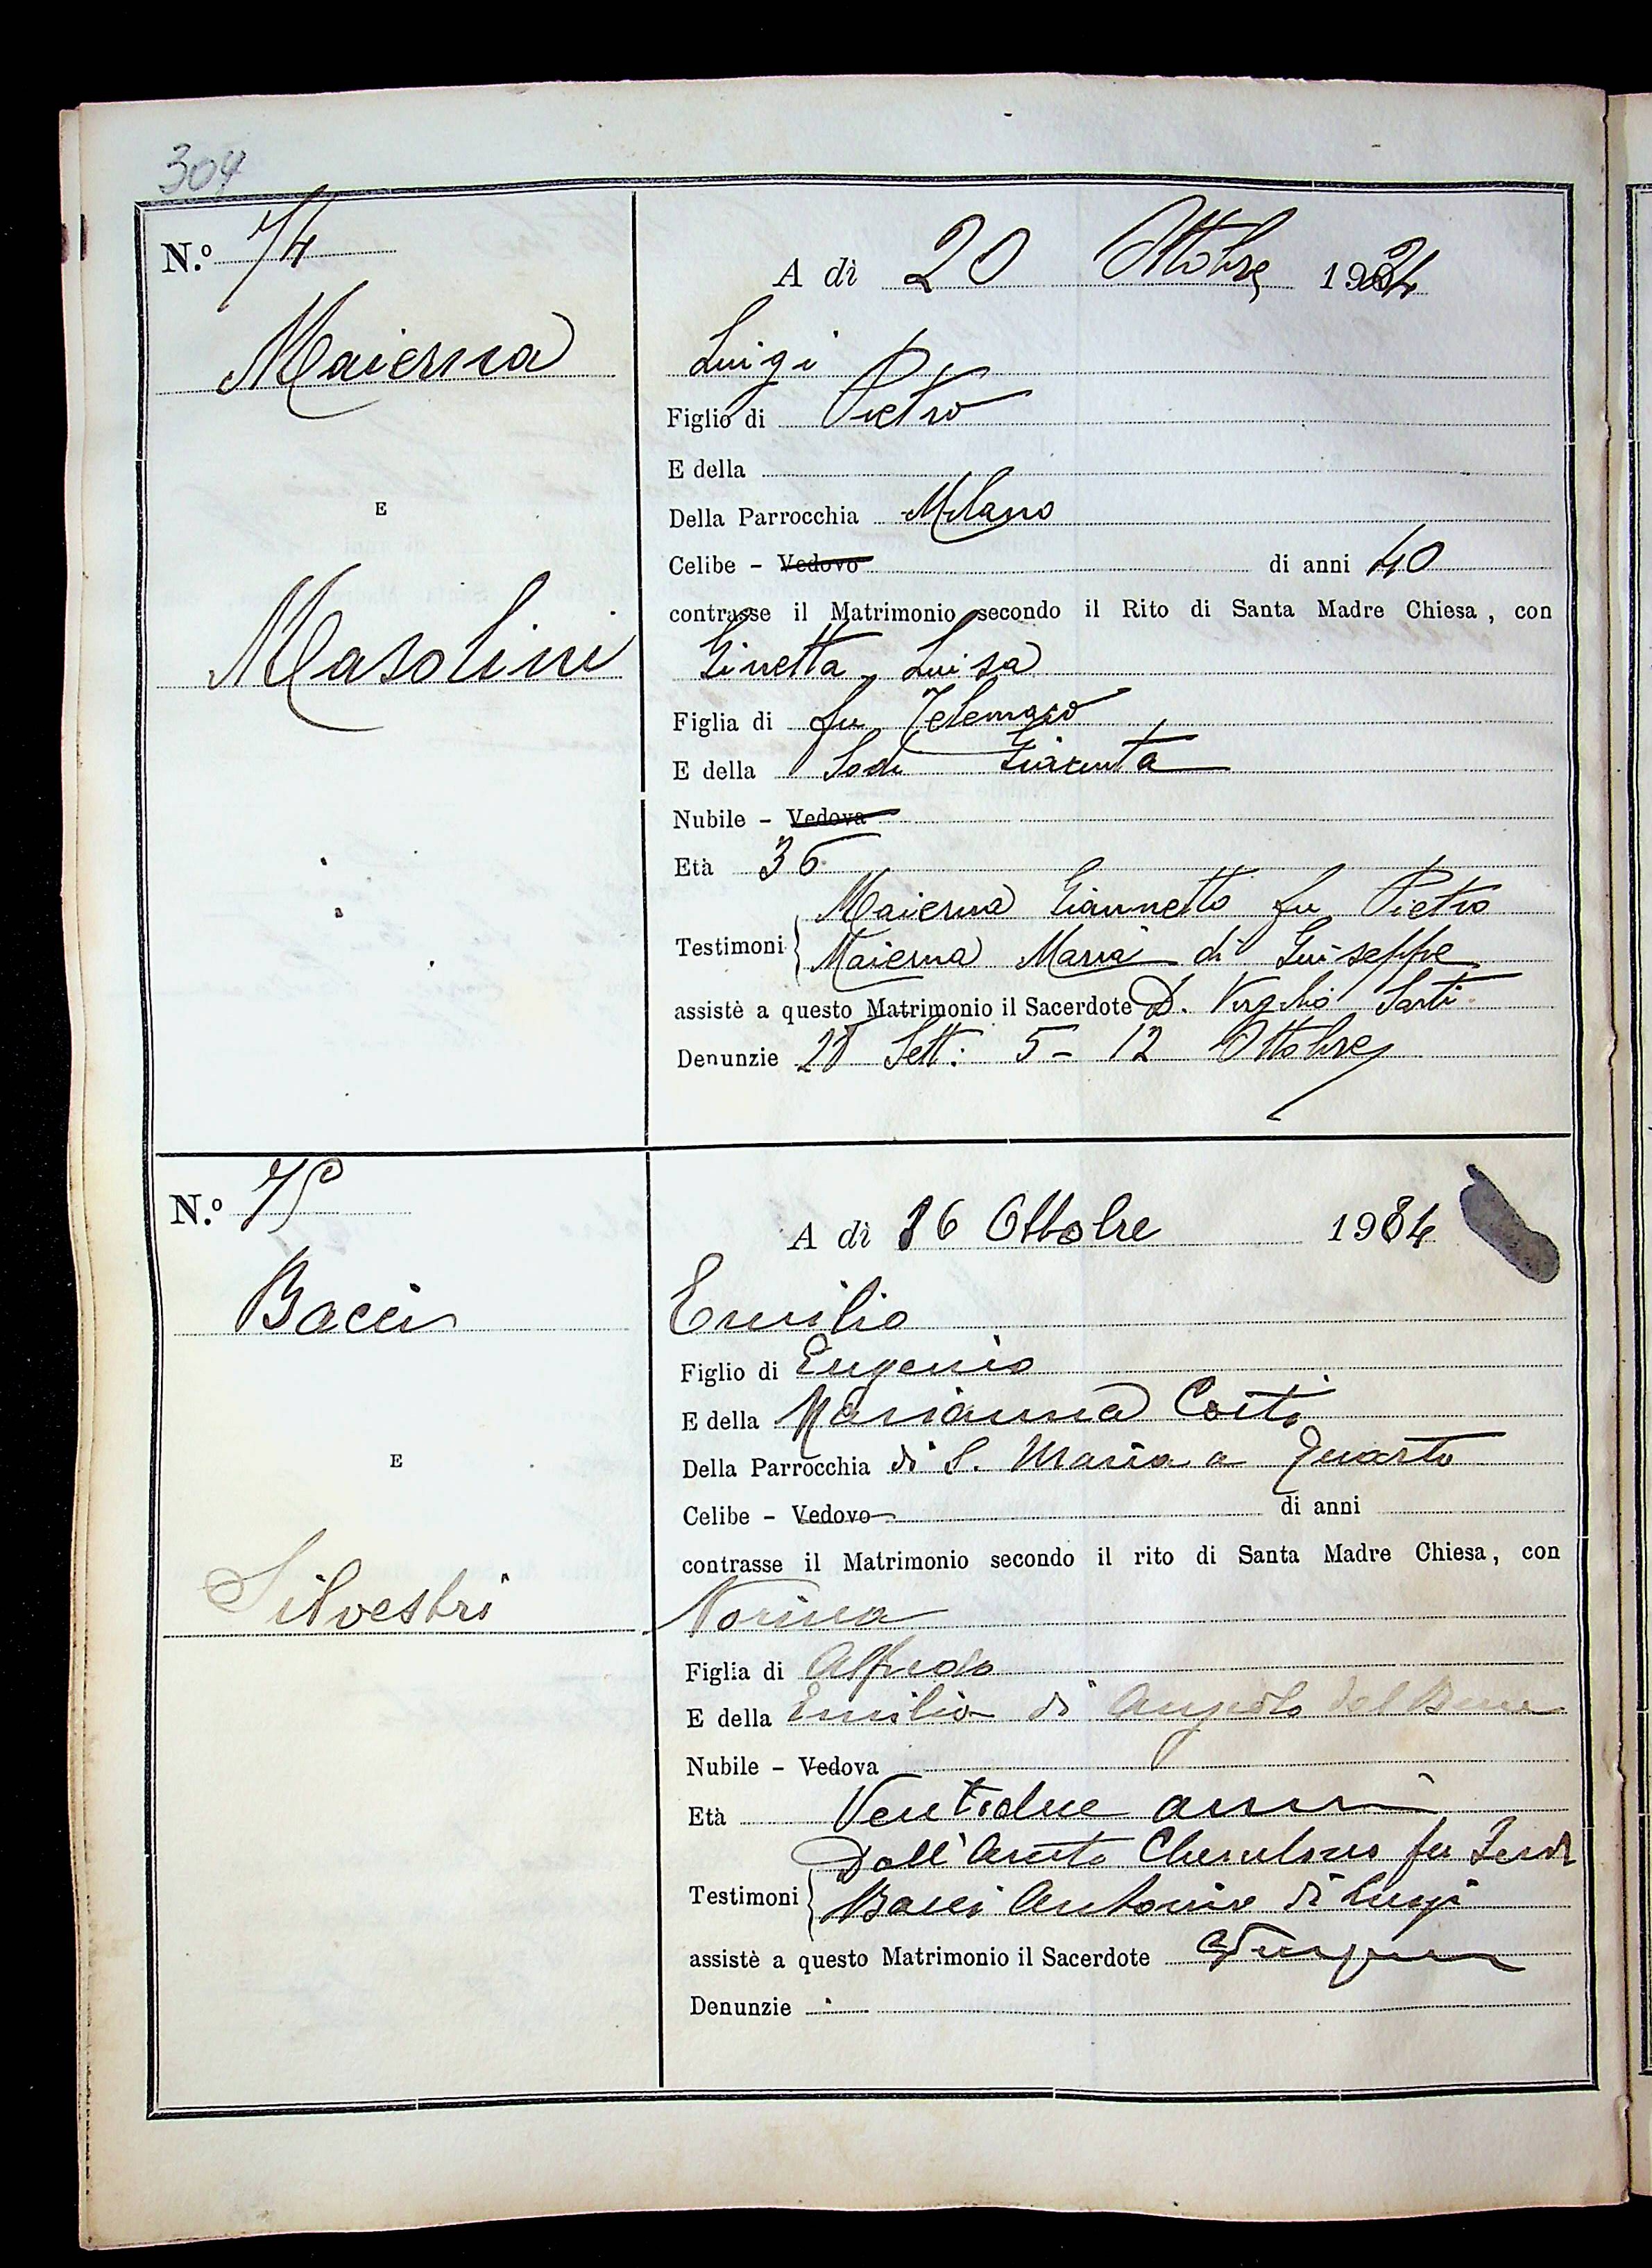 304
N.º 74
A dì 20 Ottobre 1924
Maierna
Luigi
Figlio di Pietro
E della
E
Della Parrocchia Milano
Celibe - Vedovo di anni 40
contrasse il Matrimonio secondo il Rito di Santa Madre Chiesa, con
Masolini
Ginetta Luisa
Figlia di fu Telemaco
E della Sodi Giacinta
Nubile - Vedova
Età 36
Maierna Giannetto fu Pietro
Testimoni Maierna Maria di Giuseppe
assistè a questo Matrimonio il Sacerdote D. Virgilio Sarti
Denunzie 28 Sett: 5 - 12 Ottobre
N.º 75
A dì 16 Ottobre 1924
Bacci
Emilio
Figlio di Eugenio
E della Marianna Conti
E
Della Parrocchia di S. Maria a Quarto
Celibe - Vedovo di anni
contrasse il Matrimonio secondo il rito di Santa Madre Chiesa, con
Silvestri
Norina
Figlia di Alfredo
E della Emilia di Angiolo del Bene
Nubile - Vedova
Età Ventidue anni
Dall'Aruto Cherubino fu Ferd
Testimoni Bacci Antonio di Luigi
assistè a questo Matrimonio il Sacerdote
Denunzie